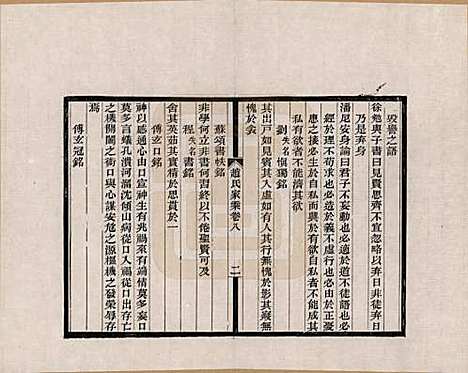 毀譽之語
徐勉與子書曰見賢思齊不宜忽略以弃日非徒弃日
乃是弃身
潘尼安身論曰君子不妄動也必適於道不徒語也必
經於理不苟求也必造於義不虛行也必由於正憂
患之接必生於自私而興於有欲自私者不能成其
私有欲者不能濟其欲
劉失名慎獨銘
其出戶如見賓其入虛如有人其行無愧於影其寢無
愧於衾
趙氏家乘卷八
二
蘇頌書帙銘
非學何立非書何習終以不倦聖賢可及
程失名書銘
含其英茹其實精於思貫於一
傅玄口銘
神以感通心由口宣禍生有兆福來有端情莫多妄口
莫多言蟻孔潰河溜沈傾山病從口入禍從口出存亡
之機開闔之術口與心謀安危之源樞機之發榮辱存
焉
傅玄冠銘